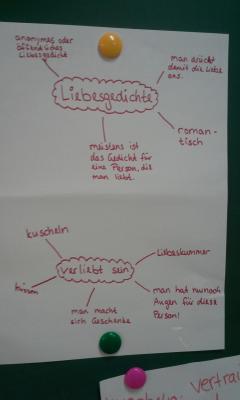 anonymes oder
öffentliches
Liebesgedicht
man drückt
damit die Liebe
aus.
Liebesgedichte
roman-
tisch
meistens ist
das Gedicht für
eine Person, die
man liebt.
kuscheln
Liebeskummer
verliebt sein
küssen
man hat nurnoch
Augen für diese
Person!
man macht
sich Geschenke
vertrau